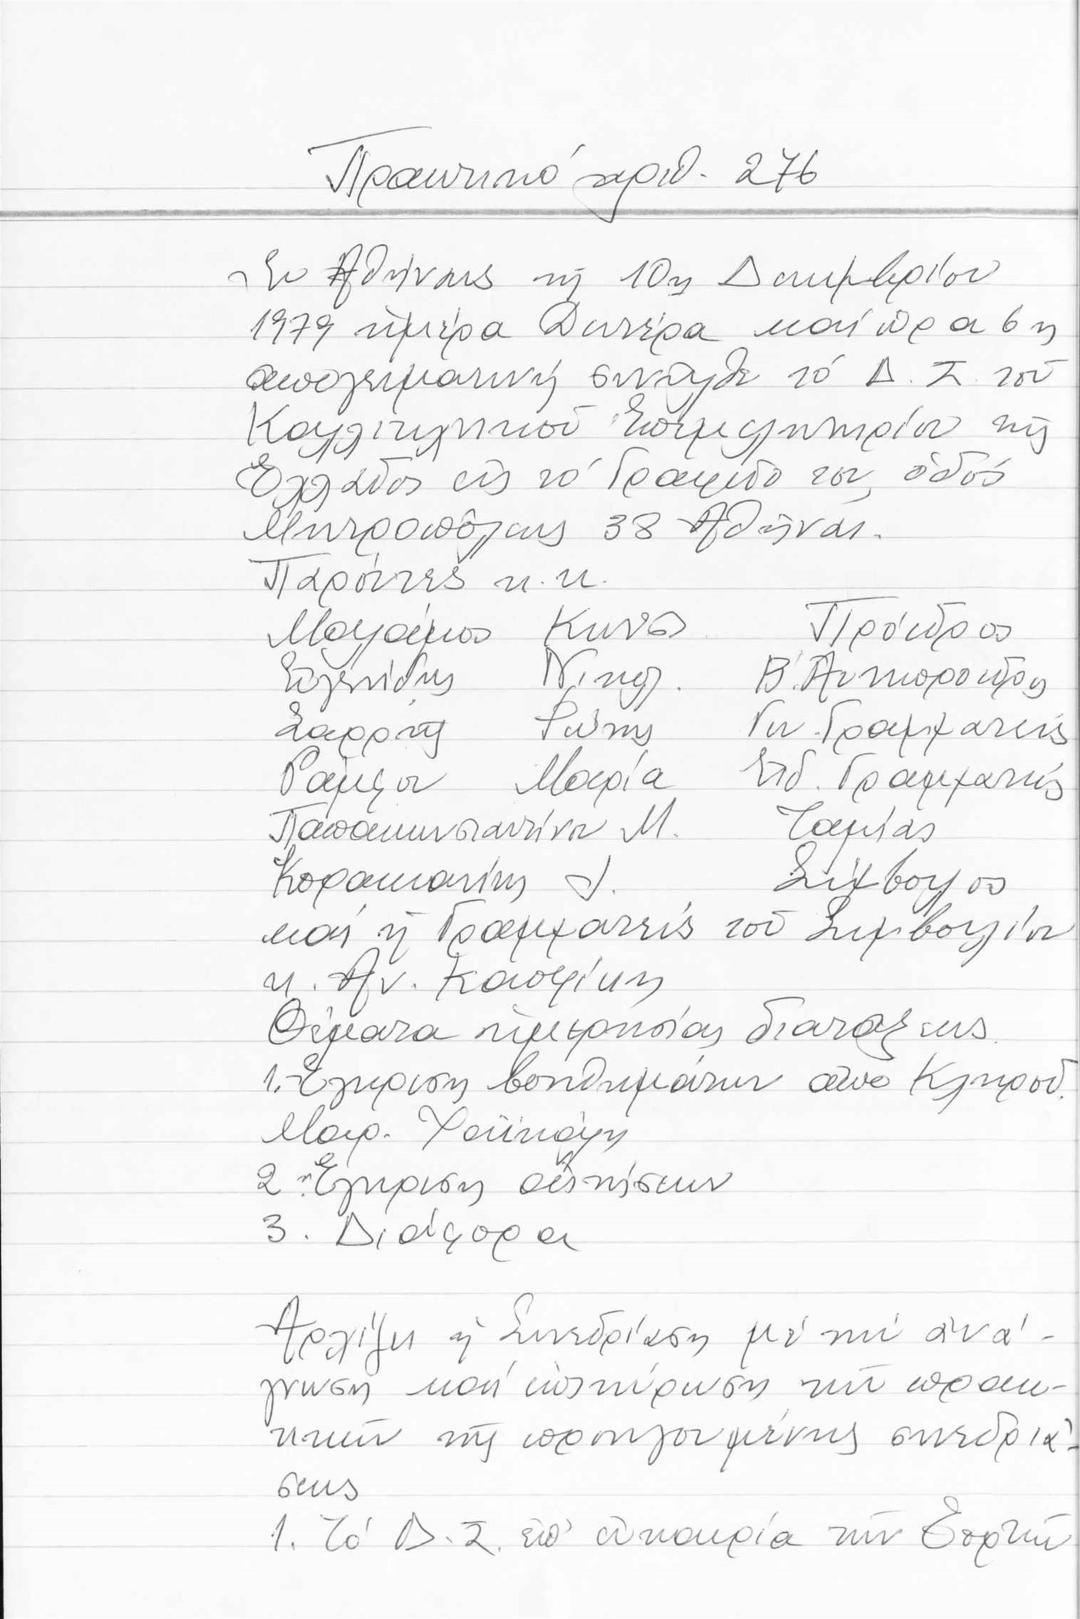 Πρακτικό ἀριθ. 276
Ἐν Ἀθήναις τῇ 10η Δεκεμβρίου
1979 ἡμέρα Δευτέρα καί ὥρα 6η
ἀπογευματινή συνῆλθε τό Δ.Σ. τοῦ
Καλλιτεχνικοῦ Ἐπιμελητηρίου τῆς
Ἑλλάδος εἰς τό Γραφεῖο του, ὁδός
Μητροπόλεως 38 Ἀθήναι.
Παρόντες κ.κ.
Μολφέσης Κων/ς Πρόεδρος
Εὐγενίδης Νικολ. Β. Ἀντιπρόεδρος
Σαρρής Φώτης Γεν. Γραμματεύς
Ράμφου Μαρία Εἰδ. Γραμματεύς
Παπακωνσταντίνου Μ. Ταμίας
Κορακιανίτης Ι. Σύμβουλος
καί ἡ Γραμματεύς τοῦ Συμβουλίου
κ. Ἀν. Καπρίκη
Θέματα ἡμερησίας διατάξεως
1. Ἔγκριση βοηθημάτων ἀπό Κληροδ.
Μαρ.
2. Ἔγκριση αἰτήσεων
3. Διάφορα
Ἀρχίζει ἡ Συνεδρίαση μέ τήν ἀνά-
γνωση καί ἐπικύρωση τῶν πρακ-
τικῶν τῆς προηγουμένης συνεδριά-
σεως
1. Τό Δ.Σ. ἐπ' εὐκαιρία τῶν Ἑορτῶν